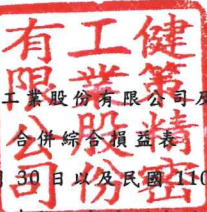 健策精密
工業股份
有限公司
工業股份有限公司及
合併綜合損益表
月 30 日以及民國 110